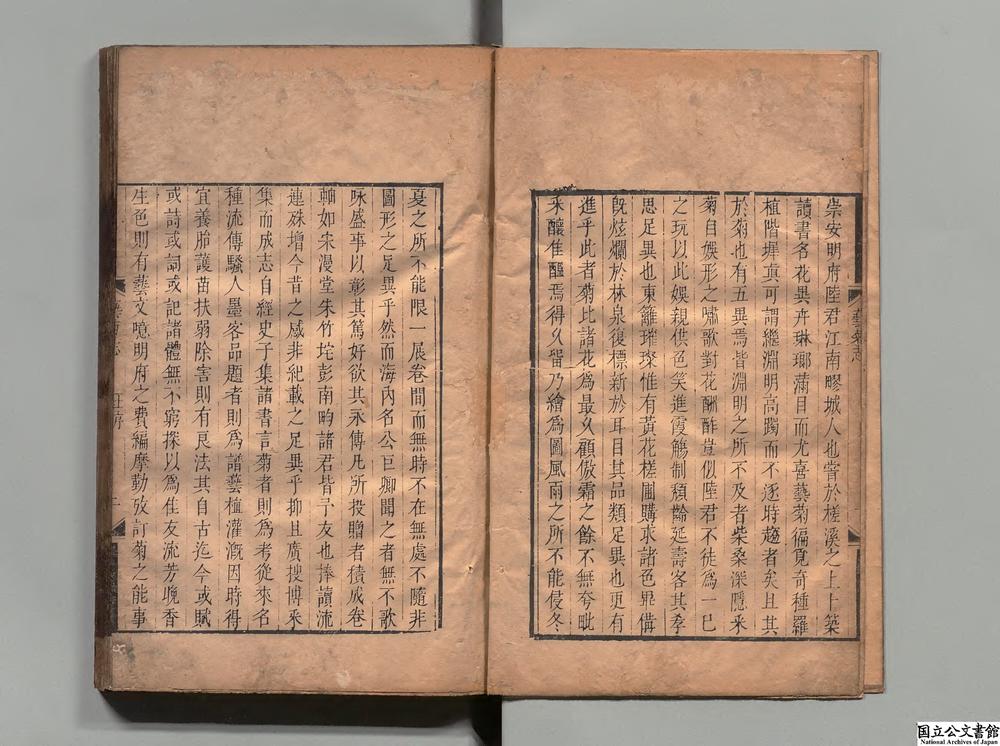 崇安明府陸君江南疁城人也嘗於槎溪之上卜築
讀書名花異卉琳瑯滿目而尤喜藝菊徧覓奇種羅
植階墀真可謂繼淵明高躅而不逐時趨者矣且其
於菊也有五異焉皆淵明之所不及者柴桑深隱采
菊自娛形之嘯歌對花酬酢豈似陸君不徒為一己
之玩以此娛親供色笑進霞觴制頹齡延壽客其孝
思足異也東籬璀璨惟有黃花槎圃購求諸色畢備
旣炫爛於林泉復標新於耳目其品類足異也更有
進乎此者菊比諸花為最久顧傲霜之餘不無夸毗
采釀佳醞焉得久留乃繪為圖風雨之所不能侵冬
藝菊志
夏之所不能限一展卷間而無時不在無處不隨非
圖形之足異乎然而海內名公巨卿聞之者無不歌
咏盛事以彰其篤好欲其永傳凡所投贈者積成卷
軸如宋漫堂朱竹垞彭南畇諸君皆予友也捧讀流
連殊增今昔之感非紀載之足異乎抑且廣搜博采
集而成志自經史子集諸書言菊者則為考從來名
種流傳騷人墨客品題者則為譜藝植灌溉因時得
宜養胎護苗扶弱除害則有良法其自古迄今或賦
或詩或詞或記諸體無不窮探以為佳友流芳晚香
生色則有藝文噫明府之費編摩勤攷訂菊之能事
藝菊志 汪序 二
国立公文書館
National Archives of Japan